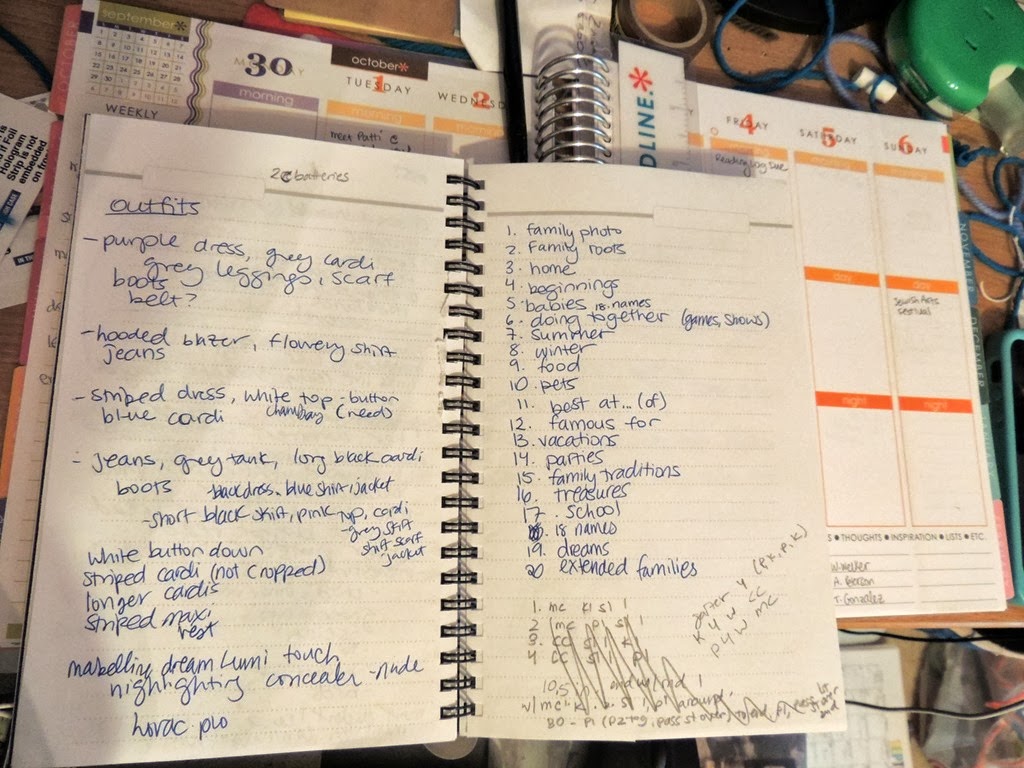 september*
30
MONDAY
october*
1
TUESDAY
2
WEDNESD
WEEKLY
morning
morning
meet Patti
DLINE.
4
FRIDAY
5
SATURDAY
6
SUNDAY
morning
morning
Reading Log Due
day
day
Jewish Arts
Festival
night
night
NOVEMBER
S • THOUGHTS • INSPIRATION • LISTS • ETC.
Strip is not
embedded
2c batteries
outfits
- purple dress, grey cardi
grey leggings, scarf
boots
belt?
- hooded blazer, flowery shirt
jeans
- striped dress, white top - button
blue cardi chambray (need)
- jeans, grey tank, long black cardi
boots
- black dress, blue shirt, jacket
- short black skirt, pink top, cardi
- grey skirt
shirt scarf
jacket
white button down
striped cardi (not cropped)
longer cardis
striped maxi
vest
maybelline dream lumi touch
highlighting concealer - nude
lorac pro
1. family photo
2. Family roots
3. home
4. beginnings
5. babies 18. names
6. doing together (games, shows)
7. summer
8. winter
9. food
10. pets
11. best at... (of)
12. famous for
13. vacations
14. parties
15. family traditions
16. treasures
17. school
18 names
19. dreams
20 extended families
1. mc k1 s1 1
2 1mc p1 s1 1
3. cc s1 k1
4 cc s1 p1
after 4 (pk. p. k)
K 4 W CC
P 4 W MC
10.5